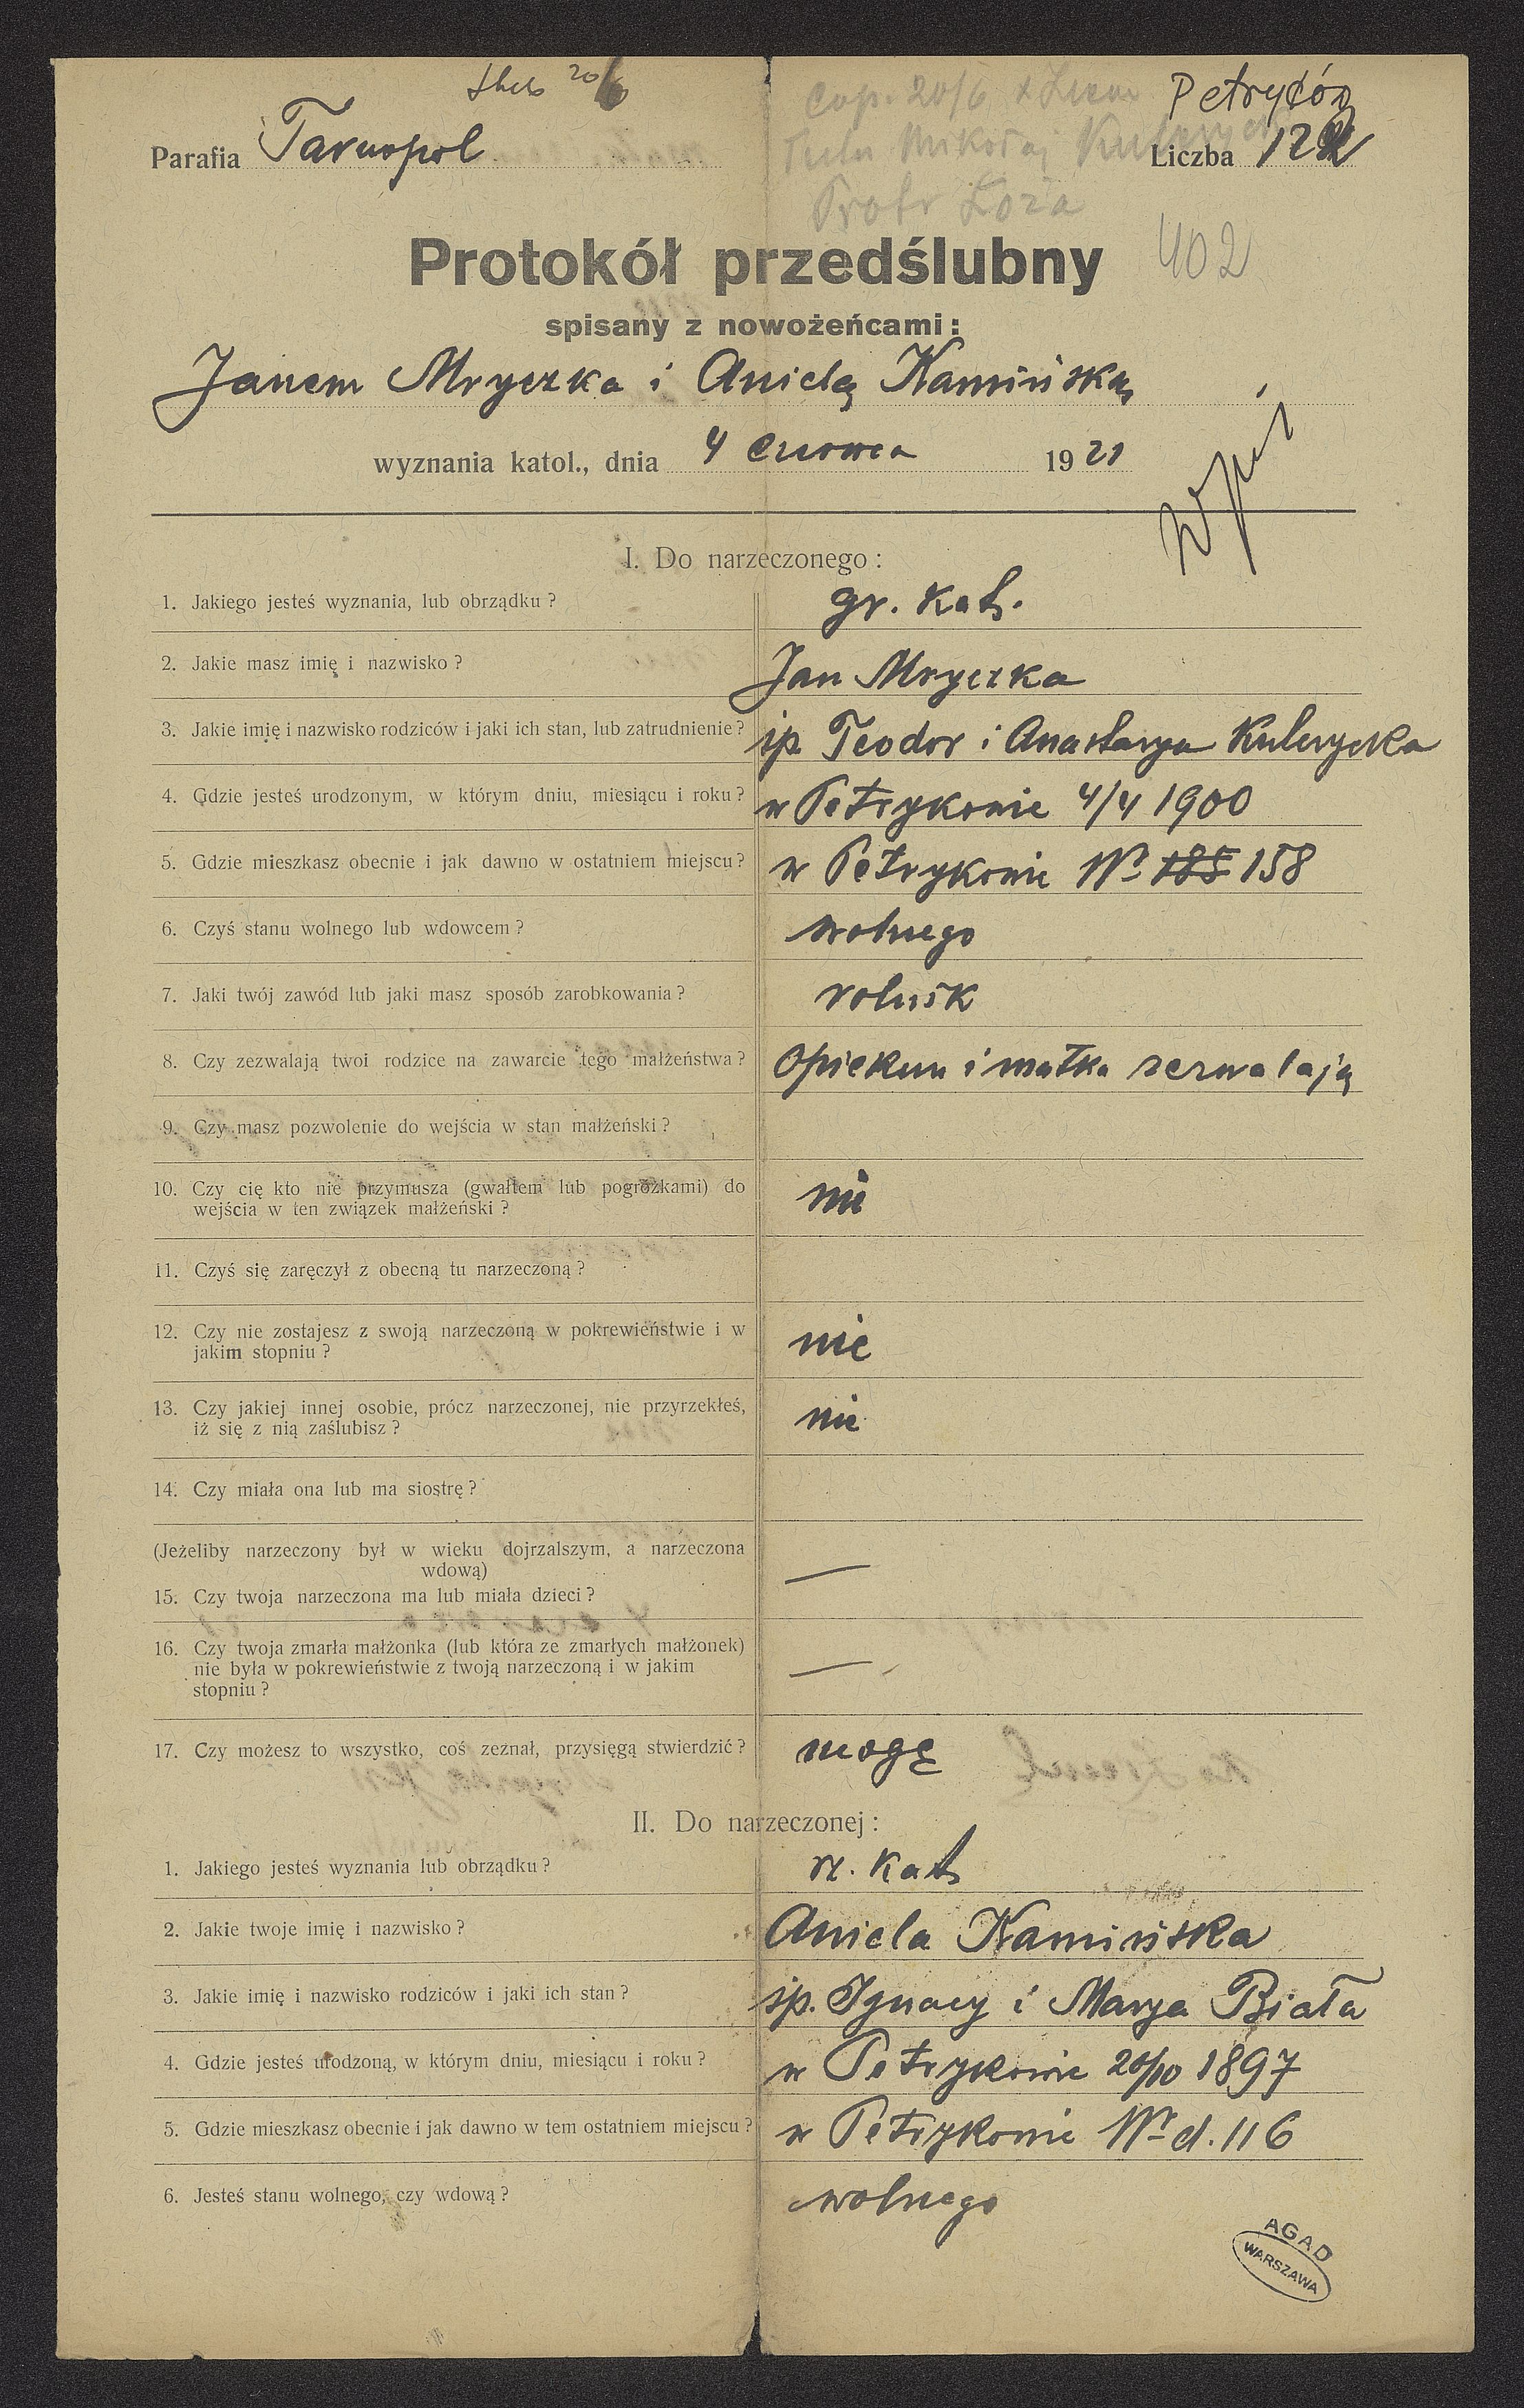 20/6
cop. 20/6
Petryków
Parafia Tarnopol
Mikołaj
Liczba 122
Piotr Łoza
Protokół przedślubny
402
spisany z nowożeńcami:
Janem Mryczka i Anielą Kamińską
wyznania katol., dnia 4 czerwca 1921
I. Do narzeczonego:
1. Jakiego jesteś wyznania, lub obrządku? gr. kat.
2. Jakie masz imię i nazwisko? Jan Mryczka
3. Jakie imię i nazwisko rodziców i jaki ich stan, lub zatrudnienie? śp. Teodor i Anastazya Kulczycka
4. Gdzie jesteś urodzonym, w którym dniu, miesiącu i roku? w Petrykowie 4/4 1900
5. Gdzie mieszkasz obecnie i jak dawno w ostatniem miejscu? w Petrykowie Nr 185 158
6. Czyś stanu wolnego lub wdowcem? wolnego
7. Jaki twój zawód lub jaki masz sposób zarobkowania? rolnik
8. Czy zezwalają twoi rodzice na zawarcie tego małżeństwa? Opiekun i matka zezwalają
9. Czy masz pozwolenie do wejścia w stan małżeński?
10. Czy cię kto nie przymusza (gwałtem lub pogróżkami) do
wejścia w ten związek małżeński? nie
11. Czyś się zaręczył z obecną tu narzeczoną?
12. Czy nie zostajesz z swoją narzeczoną w pokrewieństwie i w
jakim stopniu? nie
13. Czy jakiej innej osobie, prócz narzeczonej, nie przyrzekłeś,
iż się z nią zaślubisz? nie
14. Czy miała ona lub ma siostrę?
(Jeżeliby narzeczony był w wieku dojrzalszym, a narzeczona
wdową) —
15. Czy twoja narzeczona ma lub miała dzieci?
16. Czy twoja zmarła małżonka (lub która ze zmarłych małżonek)
nie była w pokrewieństwie z twoją narzeczoną i w jakim —
stopniu?
17. Czy możesz to wszystko, coś zeznał, przysięgą stwierdzić? mogę
II. Do narzeczonej:
1. Jakiego jesteś wyznania lub obrządku? rz. kat
2. Jakie twoje imię i nazwisko? Aniela Kamińska
3. Jakie imię i nazwisko rodziców i jaki ich stan? śp. Ignacy i Marya Biała
4. Gdzie jesteś urodzoną, w którym dniu, miesiącu i roku? w Petrykowie 20/10 1897
5. Gdzie mieszkasz obecnie i jak dawno w tem ostatniem miejscu? w Petrykowie Nr d. 116
6. Jesteś stanu wolnego, czy wdową? wolnego
AGAD
WARSZAWA